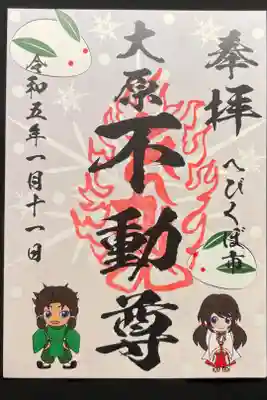 奉拝
へびくぼ市
大原
不動尊
令和五年一月十一日